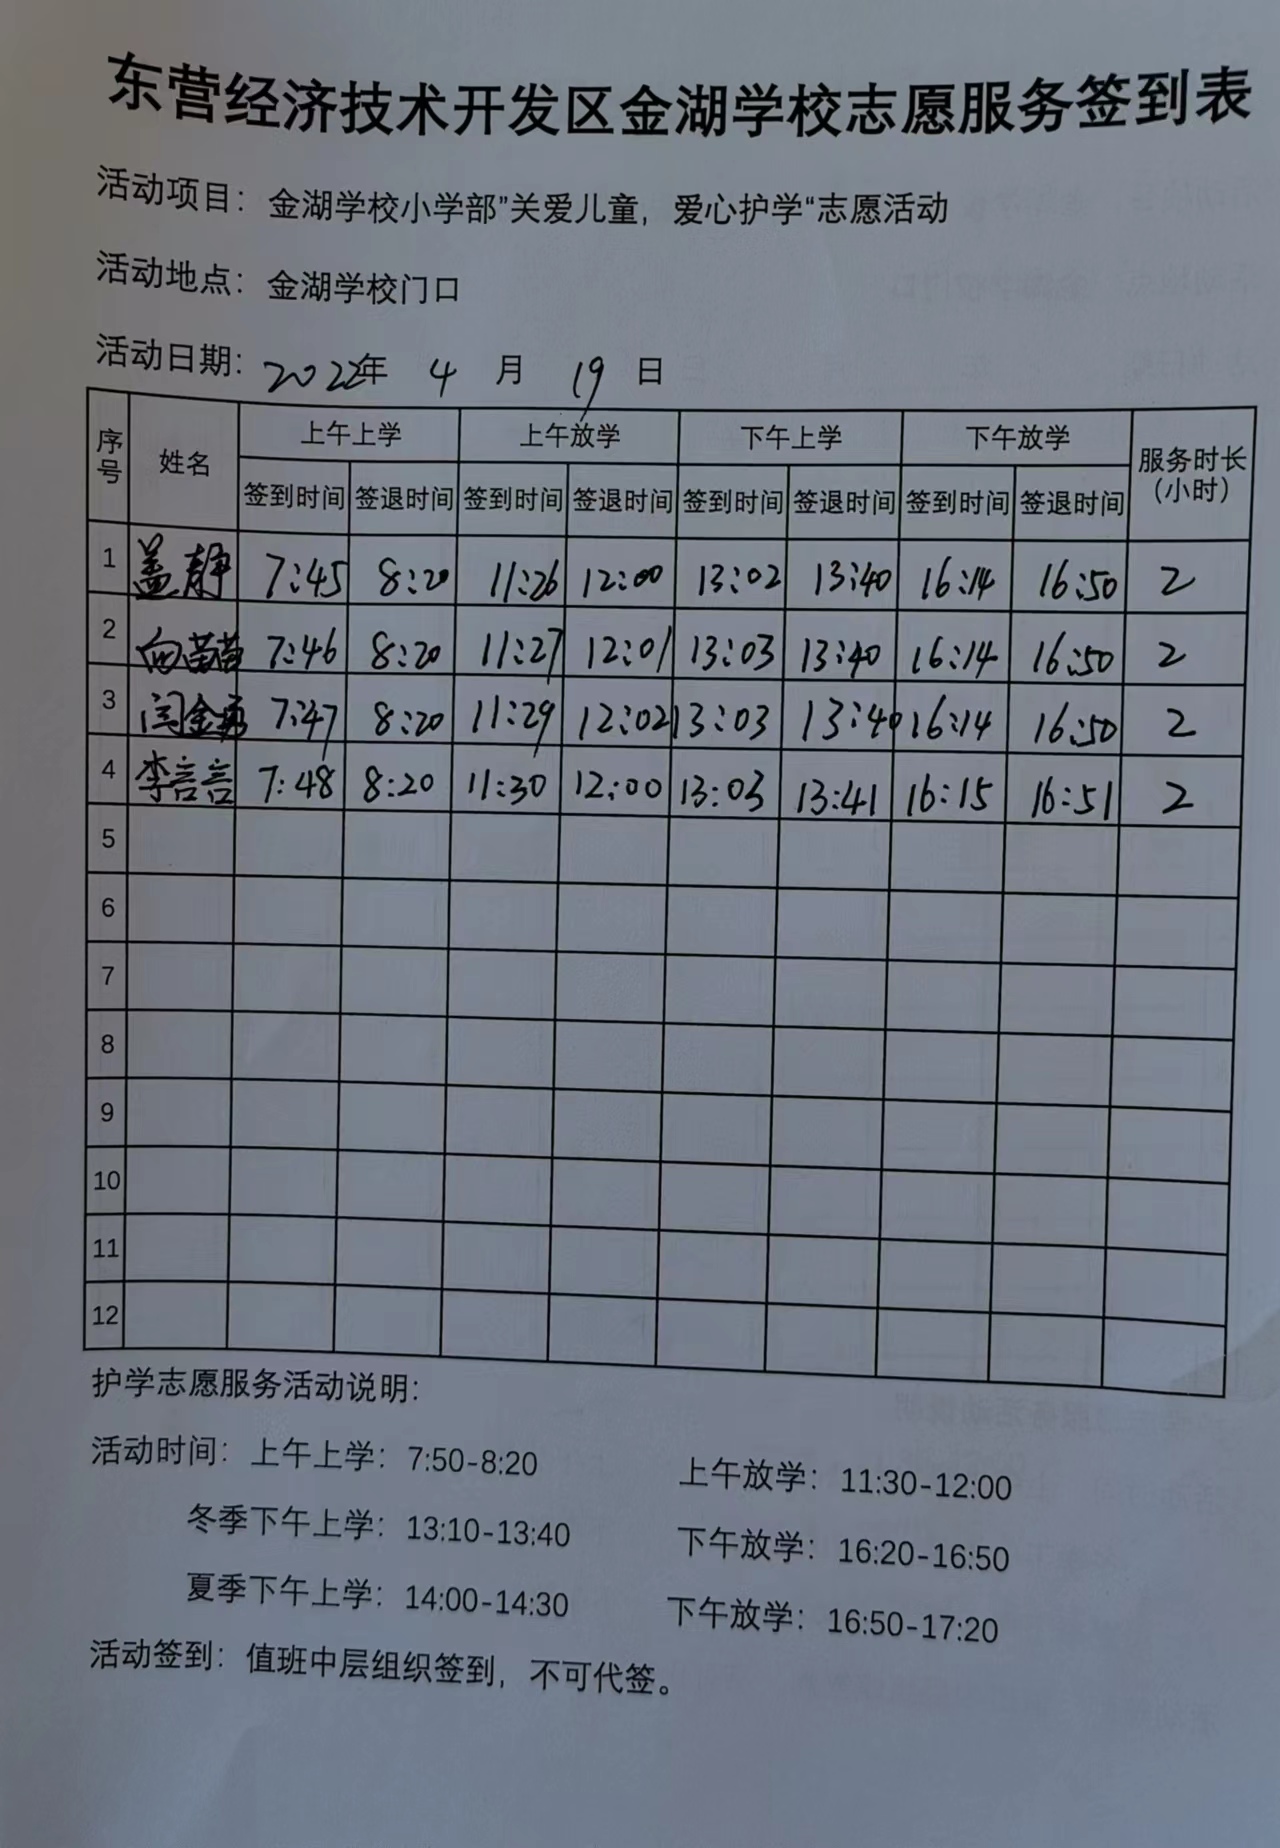 东营经济技术开发区金湖学校志愿服务签到表
活动项目：金湖学校小学部”关爱儿童，爱心护学“志愿活动
活动地点：金湖学校门口
活动日期：2022年 4 月 19 日
序号 姓名 上午上学 上午放学 下午上学 下午放学 服务时长（小时）
签到时间 签退时间 签到时间 签退时间 签到时间 签退时间 签到时间 签退时间
1 盖静 7:45 8:20 11:26 12:00 13:02 13:40 16:14 16:50 2
2 向苗苗 7:46 8:20 11:27 12:01 13:03 13:40 16:14 16:50 2
3 闫金勇 7:47 8:20 11:29 12:02 13:03 13:40 16:14 16:50 2
4 李言言 7:48 8:20 11:30 12:00 13:03 13:41 16:15 16:51 2
5
6
7
8
9
10
11
12
护学志愿服务活动说明：
活动时间：上午上学：7:50-8:20 上午放学：11:30-12:00
冬季下午上学：13:10-13:40 下午放学：16:20-16:50
夏季下午上学：14:00-14:30 下午放学：16:50-17:20
活动签到：值班中层组织签到，不可代签。